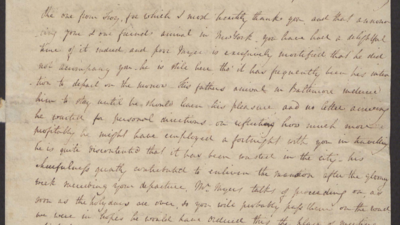 the one from Troy, for which I most heartily thank you and that announ-
cing your & our friends arrival in NewYork, you have had a delightful
time of it indeed and poor Myer is excessively mortified that he did
not accompany you, he is still here tho' it has frequently been his inten-
tion to depart on the morrow, his fathers arrival in Baltimore induced
him to stay until he should learn his pleasure and no letter arriving
he waited for personal directions. on reflecting how much more
profitably he might have employed a fortnight with you in traveling
he is quite discontented that it has been wasted in the city. his
cheerfulness greatly contributed to enliven the mansion after the gloomy
week succeeding your departure. Mr. Myers talks of proceeding on as
soon as the holydays are over, so you will probably pass them on the road
we were in hopes he would have ordered this the place of meeting